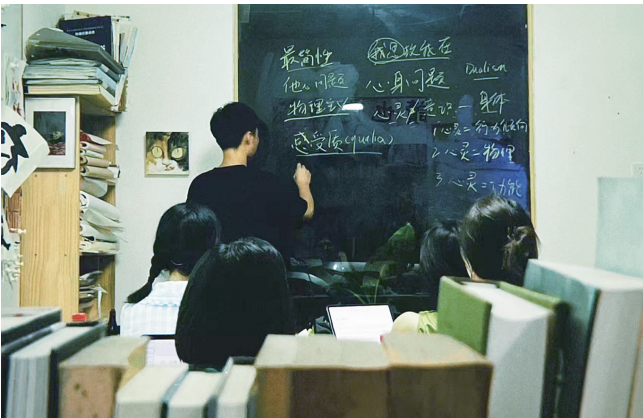 最简性
他心问题
物理主义
感受质(qualia)
我思故我在
心身问题
Dualism
心灵/意识 — 身体
1 心灵=行为倾向
2 心灵=物理
3 心灵=功能